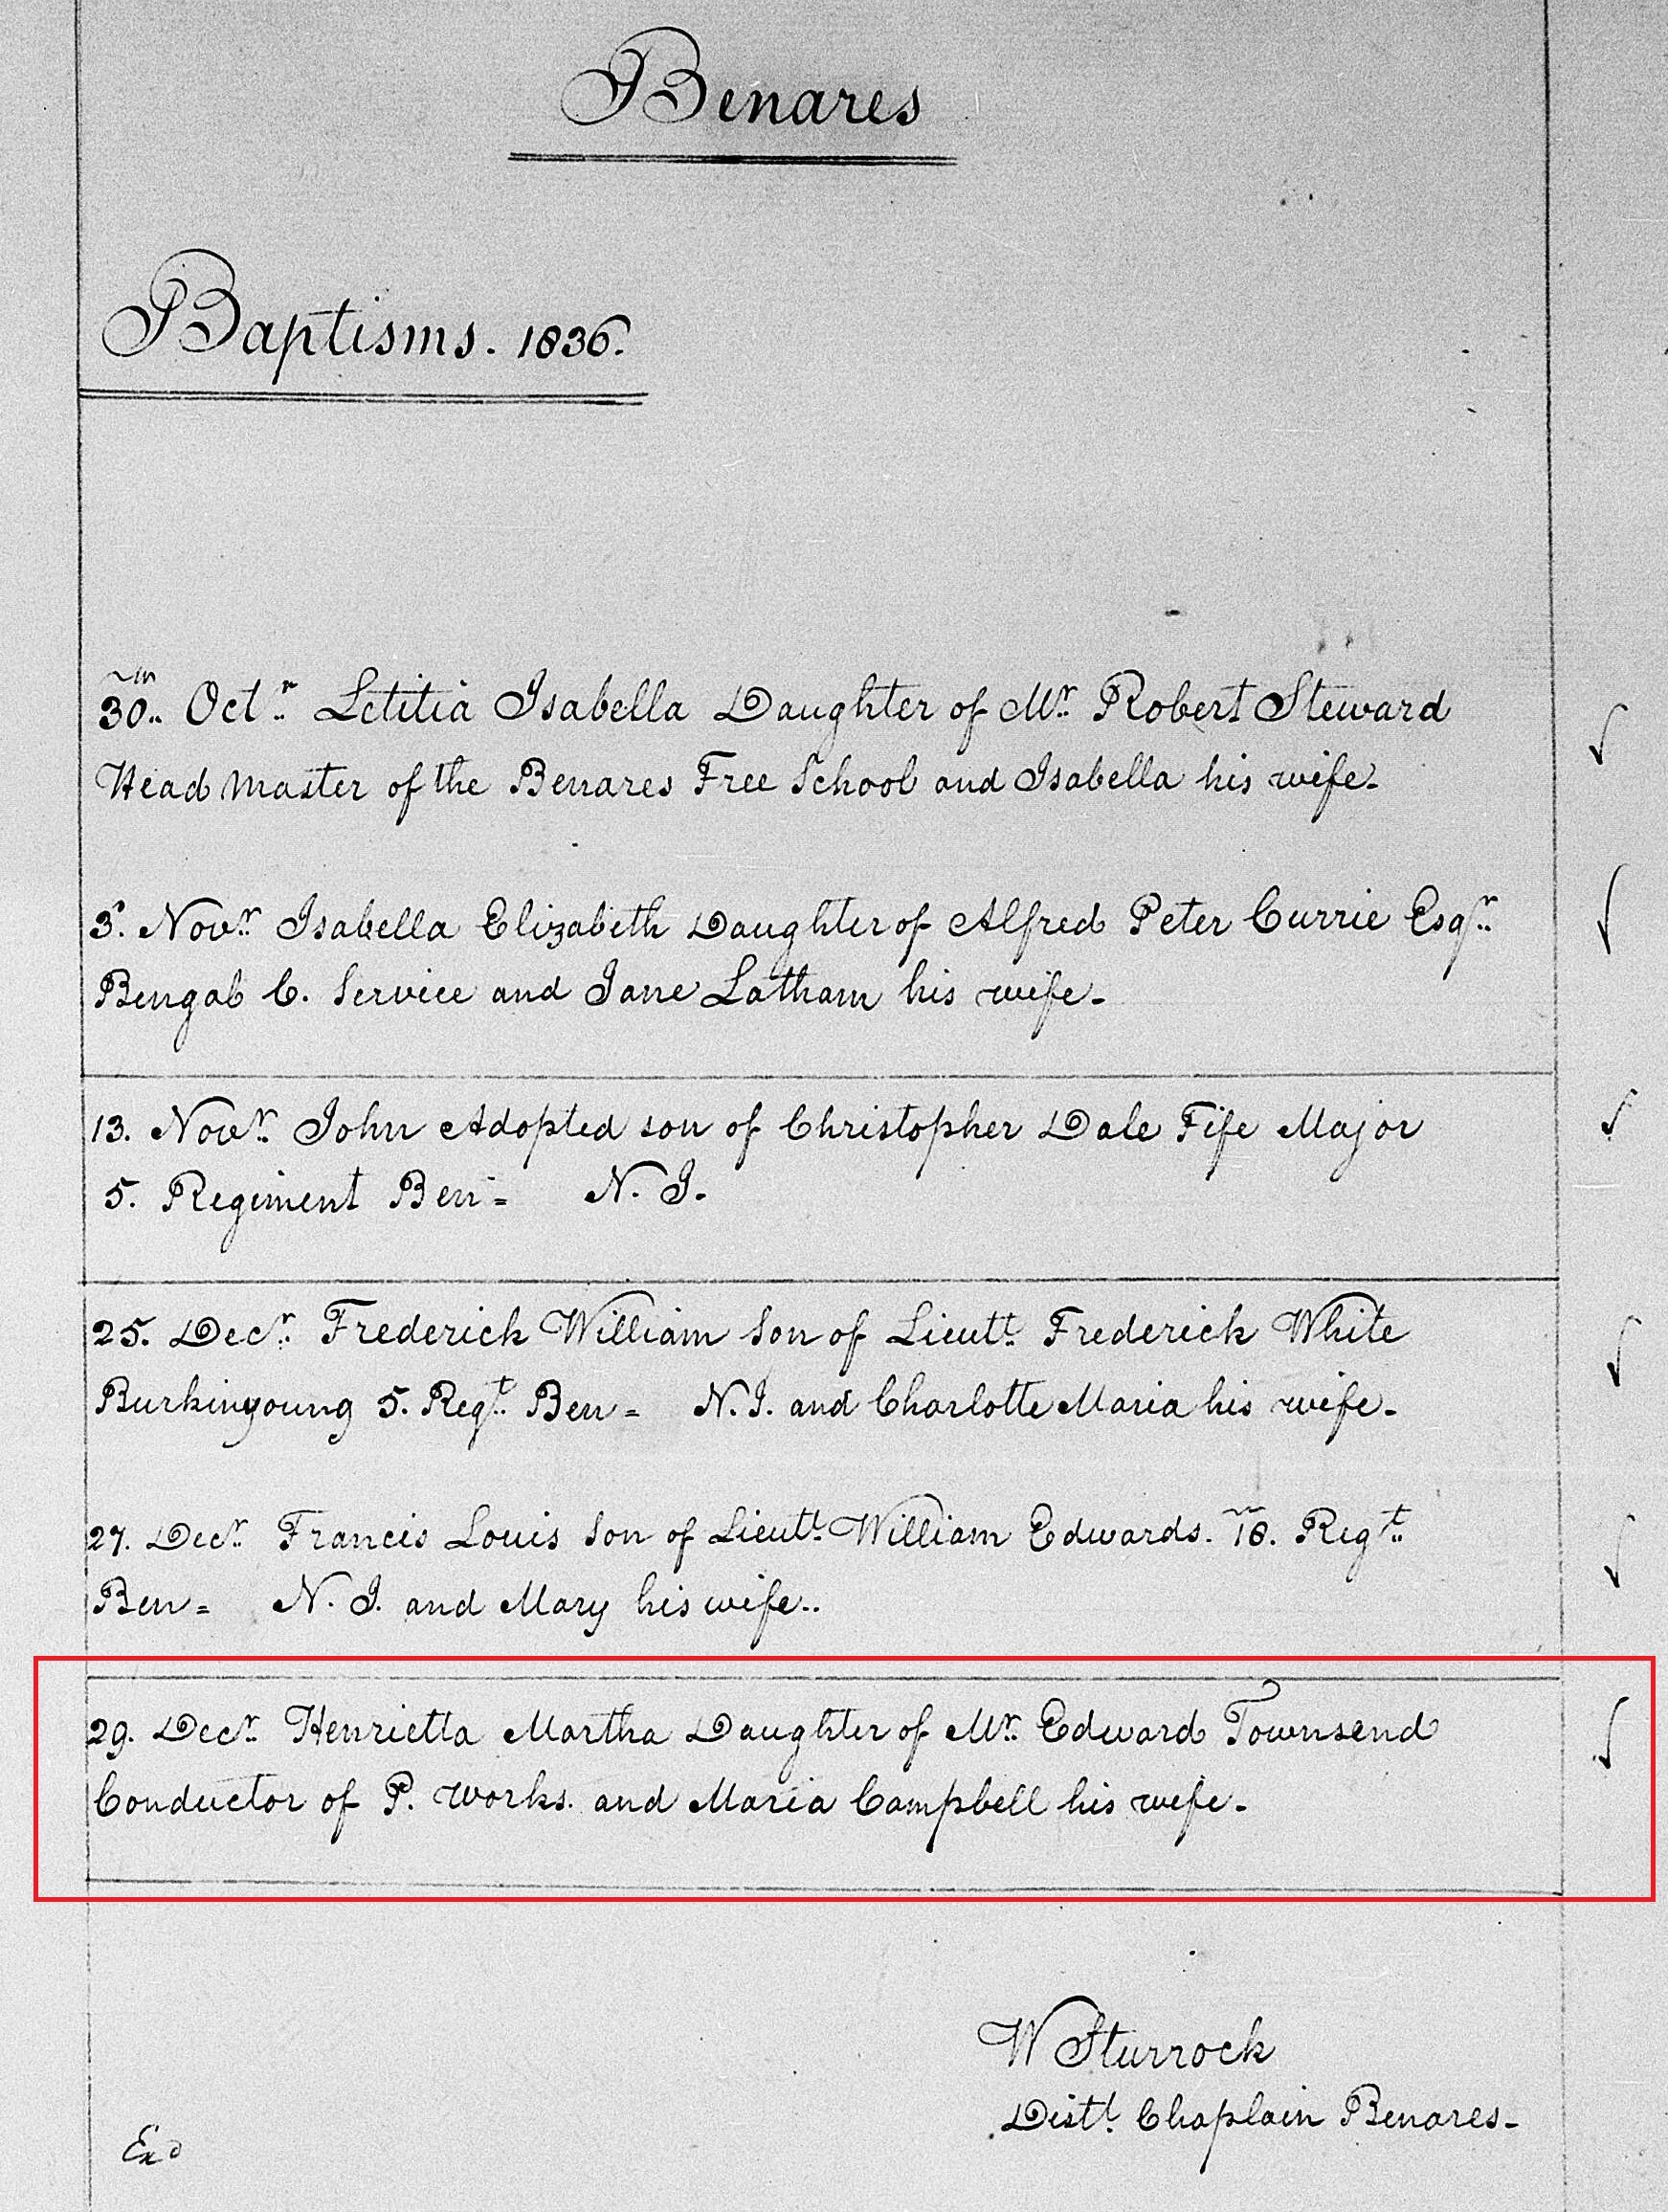 Benares
Baptisms. 1836.
30.. Octr. Letitia Isabella Daughter of Mr. Robert Steward
Head Master of the Benares Free School and Isabella his wife-
3. Novr. Isabella Elizabeth Daughter of Alfred Peter Currie Esqr.
Bengal C. Service and Jane Latham his wife-
13. Novr. John Adopted son of Christopher Dale Fife Major
5. Regiment Ben= N. I.
25. Decr. Frederick William Son of Lieutt. Frederick White
Burkinyoung 5. Regt. Ben= N. I. and Charlotte Maria his wife-
27. Decr. Francis Louis Son of Lieutt. William Edwards. 18. Regt.
Ben= N. I. and Mary his wife..
29. Decr. Henrietta Martha Daughter of Mr. Edward Townsend
Conductor of P. Works. and Maria Campbell his wife-
W Sturrock
Distt. Chaplain Benares-
Exd